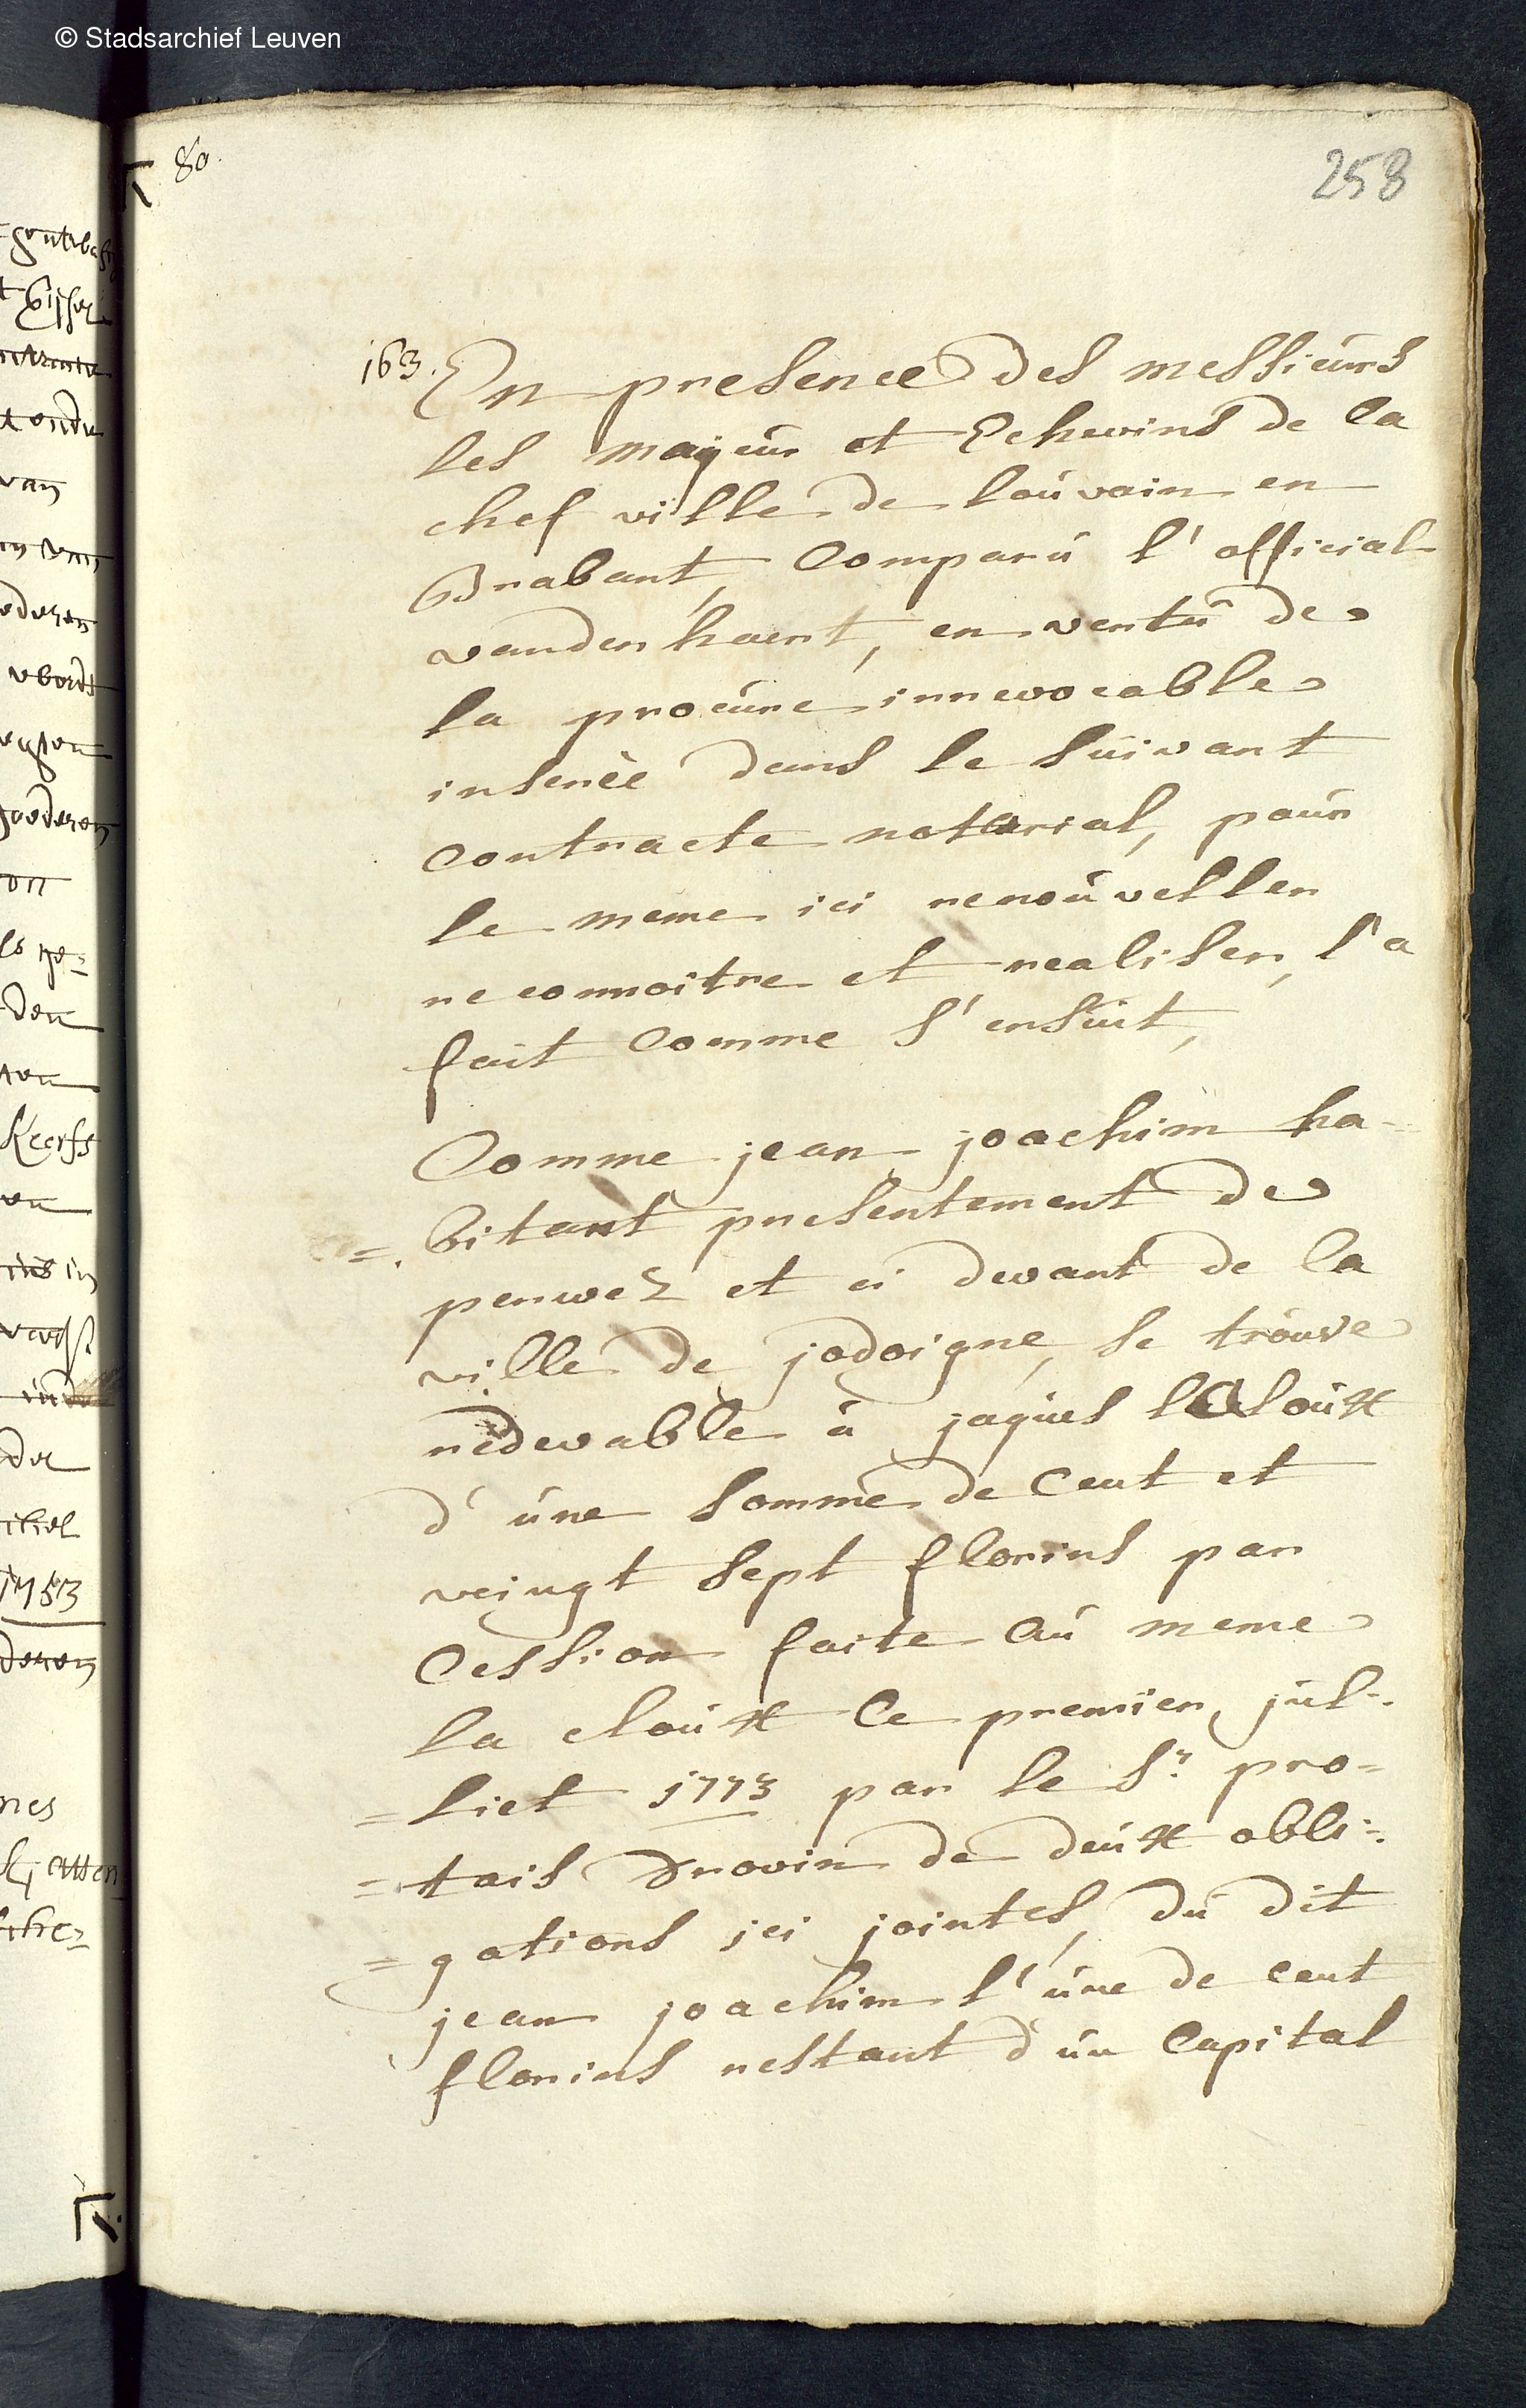 © Stadsarchief Leuven
80.
258
163. En presence des messieurs
les mayeur et Echevins de la
chef ville de louvain en
Brabant, Comparu l'official
vanden haert, en vertu de
la procure irrevocable
inserée dans le suivant
contracte notarial, pour
le meme ici renouveller
reconnoitre et realiser, l'a
fait comme s'ensuit,
Comme jean joachim ha-
=bitant presentement de
perwez et ci devant de la
ville de jodoigne, se trouve
redevable à jaques laCloux
d'une somme de Cent et
veingt sept florins par
Cession faite au meme
la cloux le premier jul-
=liet 1773 par le Sr. pro-
=tais Drovin de deux obli-
=gations ici jointes, du dit
jean joachim l'une de cent
florins restant d'un Capital
van
vbordt
on
Keerss
1753